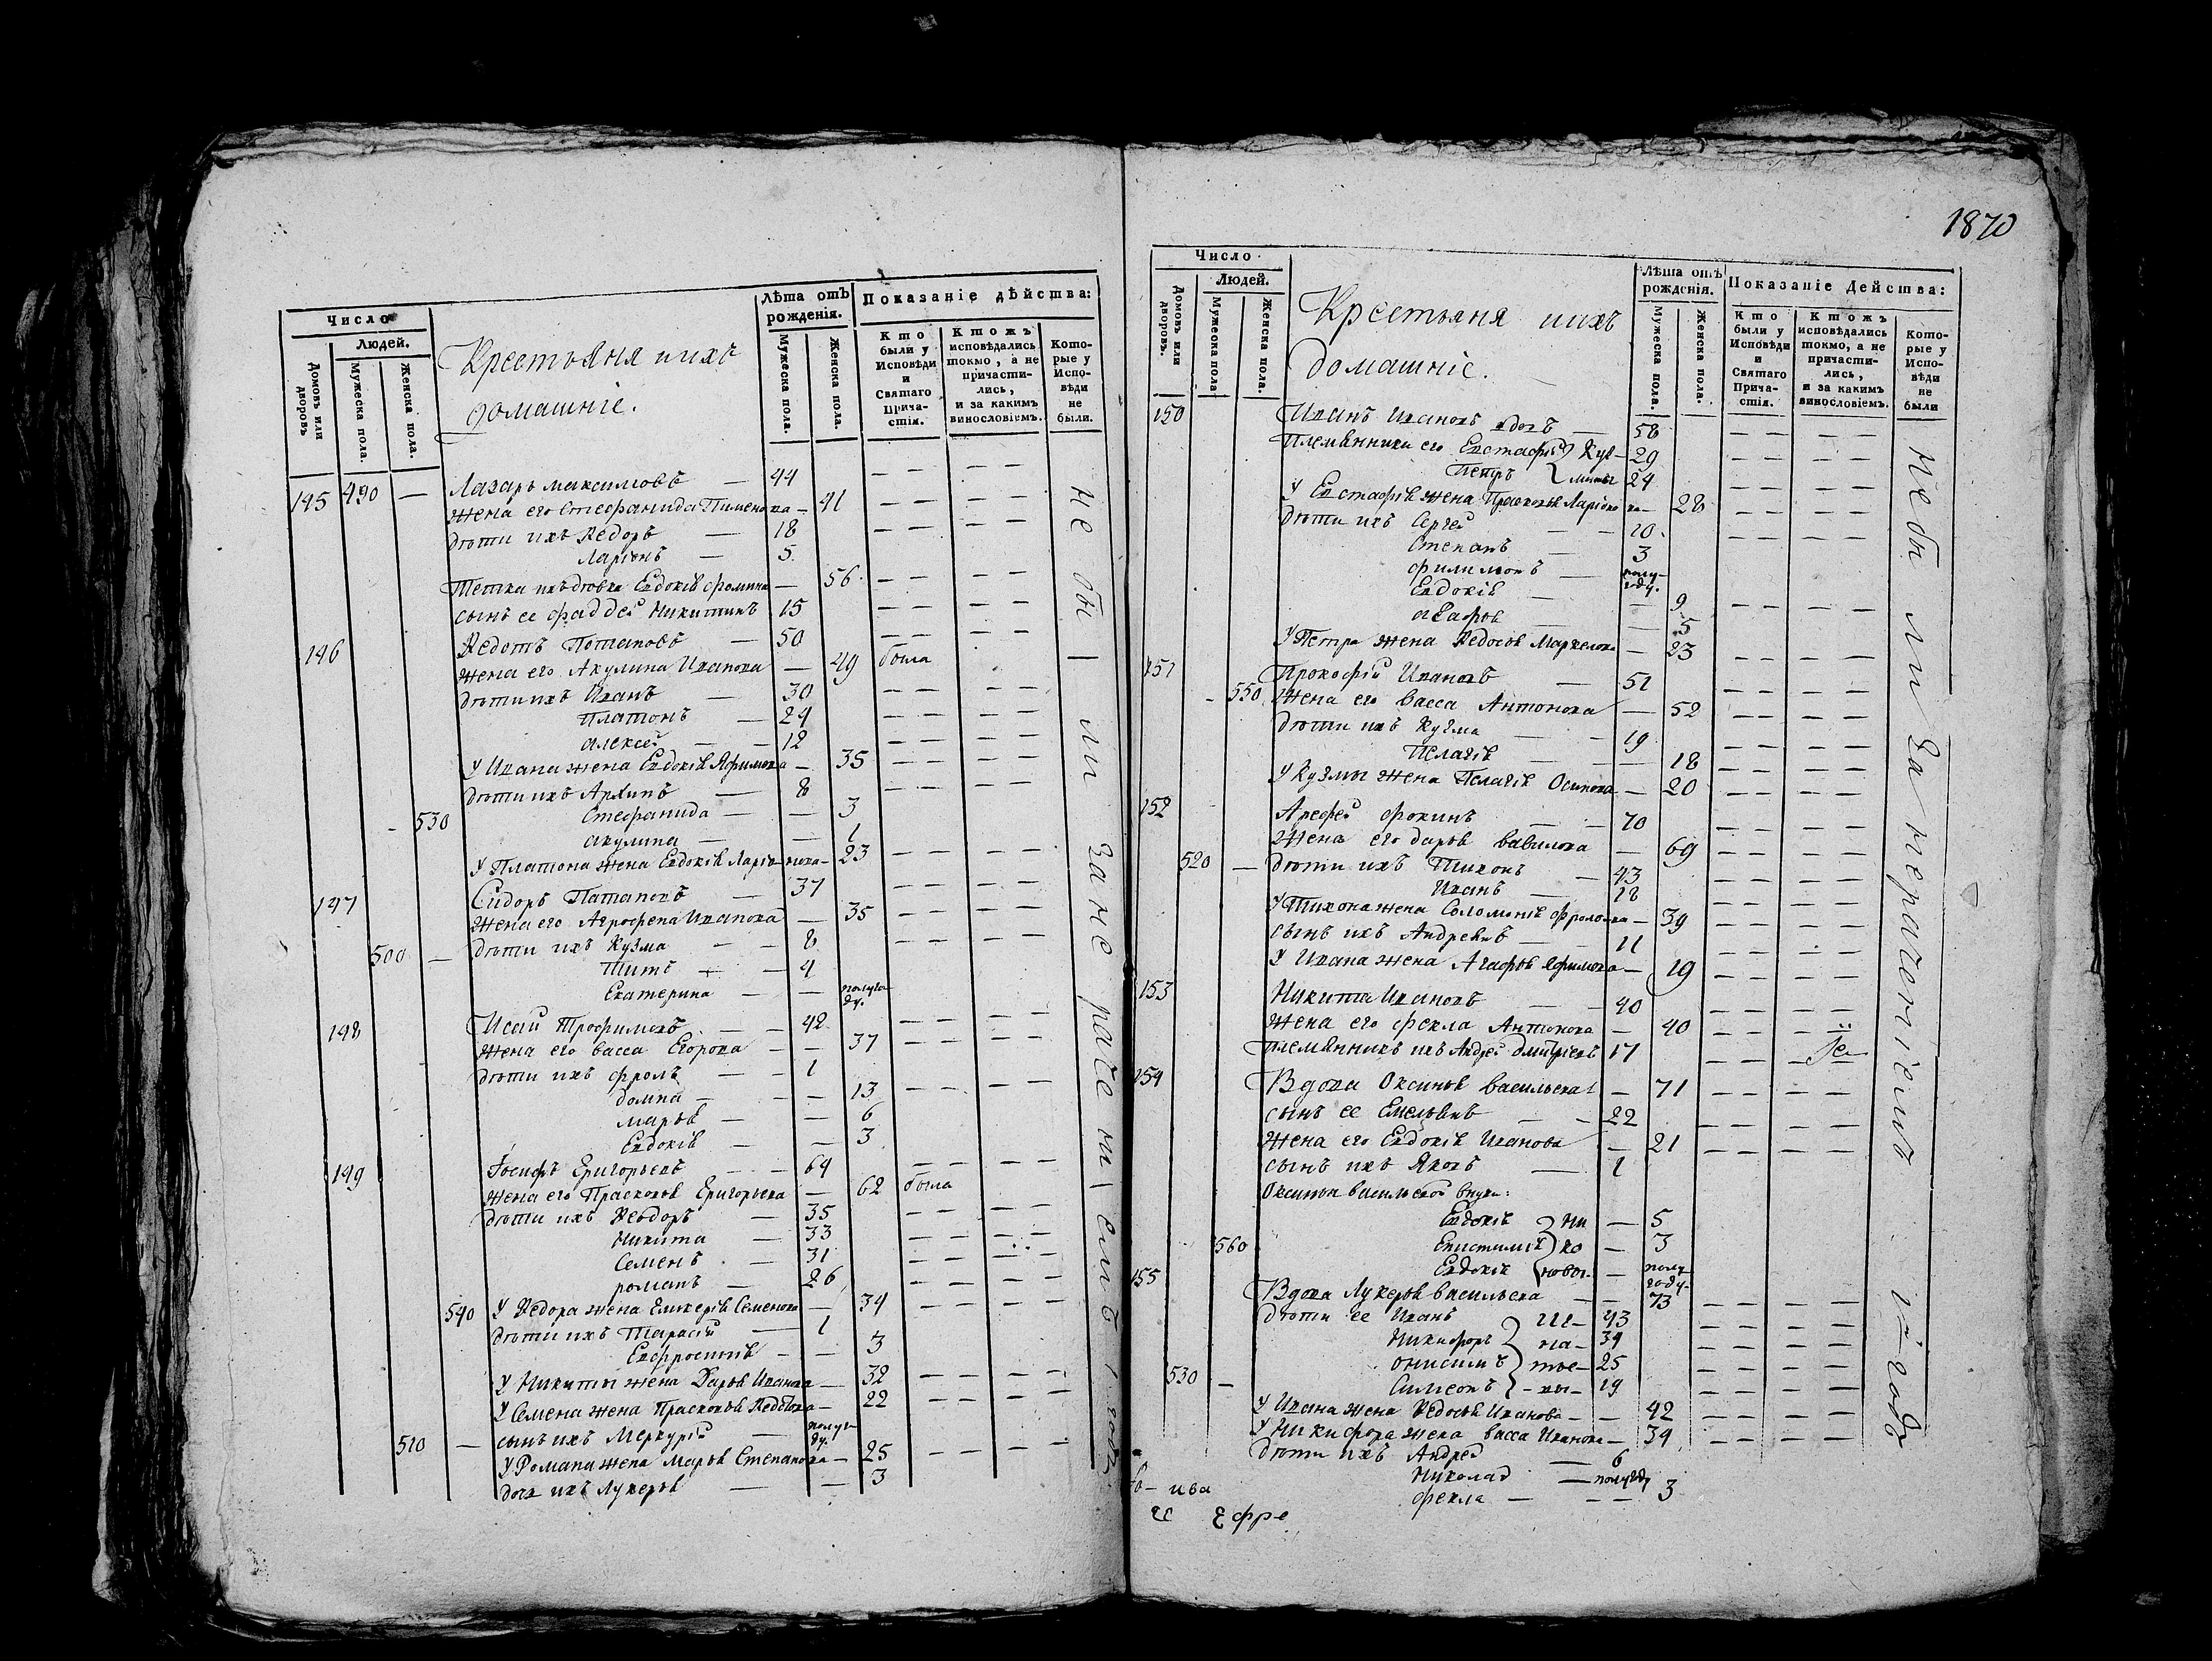 Число
Людей.
Домовъ или дворовъ
Мужеска пола.
Женска пола.
Крестьяня ихъ
домашніе.
Лѣта отъ рожденія.
Мужеска пола.
Женска пола.
Показаніе дѣйства:
Кто были у Исповѣди и Святаго Причастія.
Ктожъ исповѣдались токмо, а не причастились, и за какимъ винословіемъ.
Которые у Исповѣди не были.
145 490 — Лазарь максимовъ — 44
жена его Стефанида Пименова — 41
дѣти ихъ Ѳедоръ — 18
Ларіонъ — 5
Тетка ихъ Евдокія фомина — 56
сынъ ее фаддей Никитинъ 15
146 Ѳедотъ Потаповъ — 50
жена его Акулина Иванова — 49 была
дѣти ихъ Иванъ — 30
Платонъ — 24
алексей — 12
У Ивана жена Евдокія Яфимова — 35
дѣти ихъ Архипъ — 8
530 Стефанида — 3
акулина — 1
У Платона жена Евдокія Ларіонова — 23
147 Сидоръ Патаповъ — 37
Жена его Агрофена Иванова — 35
500 — дѣти ихъ Кузма — 8
Титъ — 4
Екатерина — полугоду.
148 Исаи Трофимовъ — 42
жена его васса Егорова — 37
дѣти ихъ фролъ — 1
домна — 13
марья — 6
Евдокія — 3
149 Іосифъ Григорьевъ — 64
жена его Прасковья Григорьева — 62 была
дѣти ихъ Ѳеодоръ — 35
Никита — 33
Семенъ — 31
романъ — 26
540 У Ѳедора жена Гликерія Семенова — 34
дѣти ихъ Тарасій — 1
Евфросинія — 3
У Никиты жена Дарья Иванова — 32
У Семена жена Прасковья Ѳедотова — 22
510 — сынъ ихъ Меркурій — полугоду.
У Романа жена Марья Степанова — 25
дочь ихъ Лукерья — 3
не были за нераченіемъ 1 годъ
1870
Число
Людей.
Домовъ или дворовъ.
Мужеска пола
Женска пола.
Крестьяня ихъ
домашніе.
Лѣта отъ рожденія.
Мужеска пола.
Женска пола.
Показаніе Дейсшва:
Кто были у Исповѣди и Святаго Причастія.
Ктожъ исповѣдались токмо, а не причастились, и за какимъ винословіемъ.
Которые у Исповѣди не были
150 Иванъ Ивановъ вдовъ — 58
Племянники его Евстафій 29
Петръ 24
У Евстафія жена Прасковья Ларіонова — 28
дѣти ихъ Сергей — 10
Степанъ — 3
филимонъ — полугоду.
Евдокія — 9
агафья — 5
У Петра жена Ѳедосья Маркелова — 23
151 Прокофій Ивановъ — 51
550 Жена его васса Антонова — 52
дѣти ихъ Кузма — 19
Пелагія — 18
У Кузмы жена Пелагія Осипова — 20
152 Арефей фокинъ — 70
Жена его дарья вавилова — 69
520 — дѣти ихъ Тихонъ — 43
Иванъ — 18
У Тихона жена Соломонія фролова — 39
сынъ ихъ Андреянъ — 11
У Ивана жена Агафья Яфимова — 19
153 Никита Ивановъ — 40
жена его фекла Антонова — 40
племянникъ ихъ Андрей дмитріевъ 17
154 Вдова Оксинья васильева — 71
сынъ ее Емельянъ — 22
Жена его Евдокія Иванова — 21
сынъ ихъ Яковъ — 1
Оксиньи васильевой внуки:
Евдокія } Ни — 5
560 Епистимія } ко — 3
Евдокія } новы — полугоду
155 Вдова Лукерья васильева — 73
дѣти ее Иванъ } Иг— 43
Никифоръ } на— 34
онисимъ } тье— 25
530 — Симеонъ } —вы— 19
У Ивана жена Ѳедосья Иванова — 42
У Никифора жена васса Иванова — 34
дѣти ихъ Андрей — 6
Николай — полугоду
фекла — 3
не были за нераченіемъ 1 годъ
ива
ее Ефре